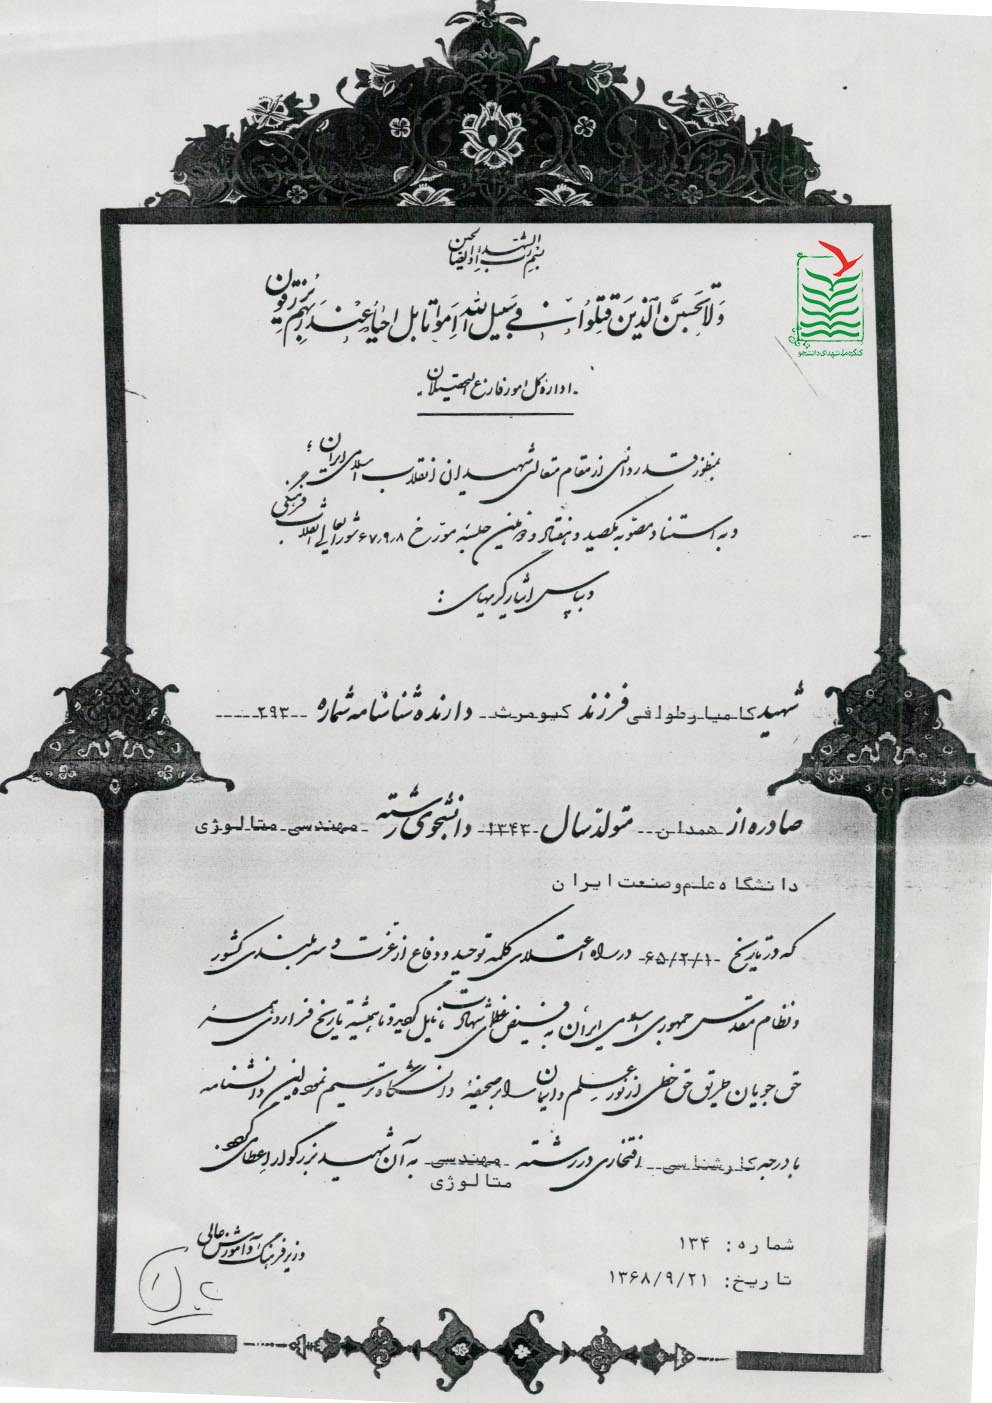 بسم رب الشهداء و الصالحین
ولا تحسبن الذین قتلوا فی سبیل الله امواتا بل احیاء عند ربهم یرزقون
کنگره ملی شهدای دانشجو
اداره کل امور فارغ التحصیلان
بمنظور قدردانی از مقام متعالی شهیدان انقلاب اسلامی ایران؛
و به استناد مصوبه یکصد و هفتاد و دومین جلسه مورخ ۶۷٫۹٫۸ شورایعالی انقلاب فرهنگی
و بپاس ایثارگریهای :
شهید کامیار طوافی فرزند کیومرث دارنده شناسنامه شماره ۲۹۳
صادره از همدان متولد سال ۱۳۴۳ دانشجوی رشته مهندسی متالوژی
دانشگاه علم و صنعت ایران
که در تاریخ ۶۵/۲/۱۰ در راه اعتلای کلمه توحید و دفاع از عزت و سربلندی کشور
و نظام مقدس جمهوری اسلامی ایران به فیض عظمای شهادت نایل گردید تا همیشه تاریخ فرا روی همه
حق جویان طریق حق خطی از نور علم و ایمان را بر صحیفه دانشگاه ترسیم نموده این دانشنامه
با درجه کارشناسی افتخاری در رشته مهندسی متالوژی به آن شهید بزرگوار اعطا می گردد.
شماره: ۱۳۴
تاریخ: ۱۳۶۸/۹/۲۱
وزیر فرهنگ و آموزش عالی